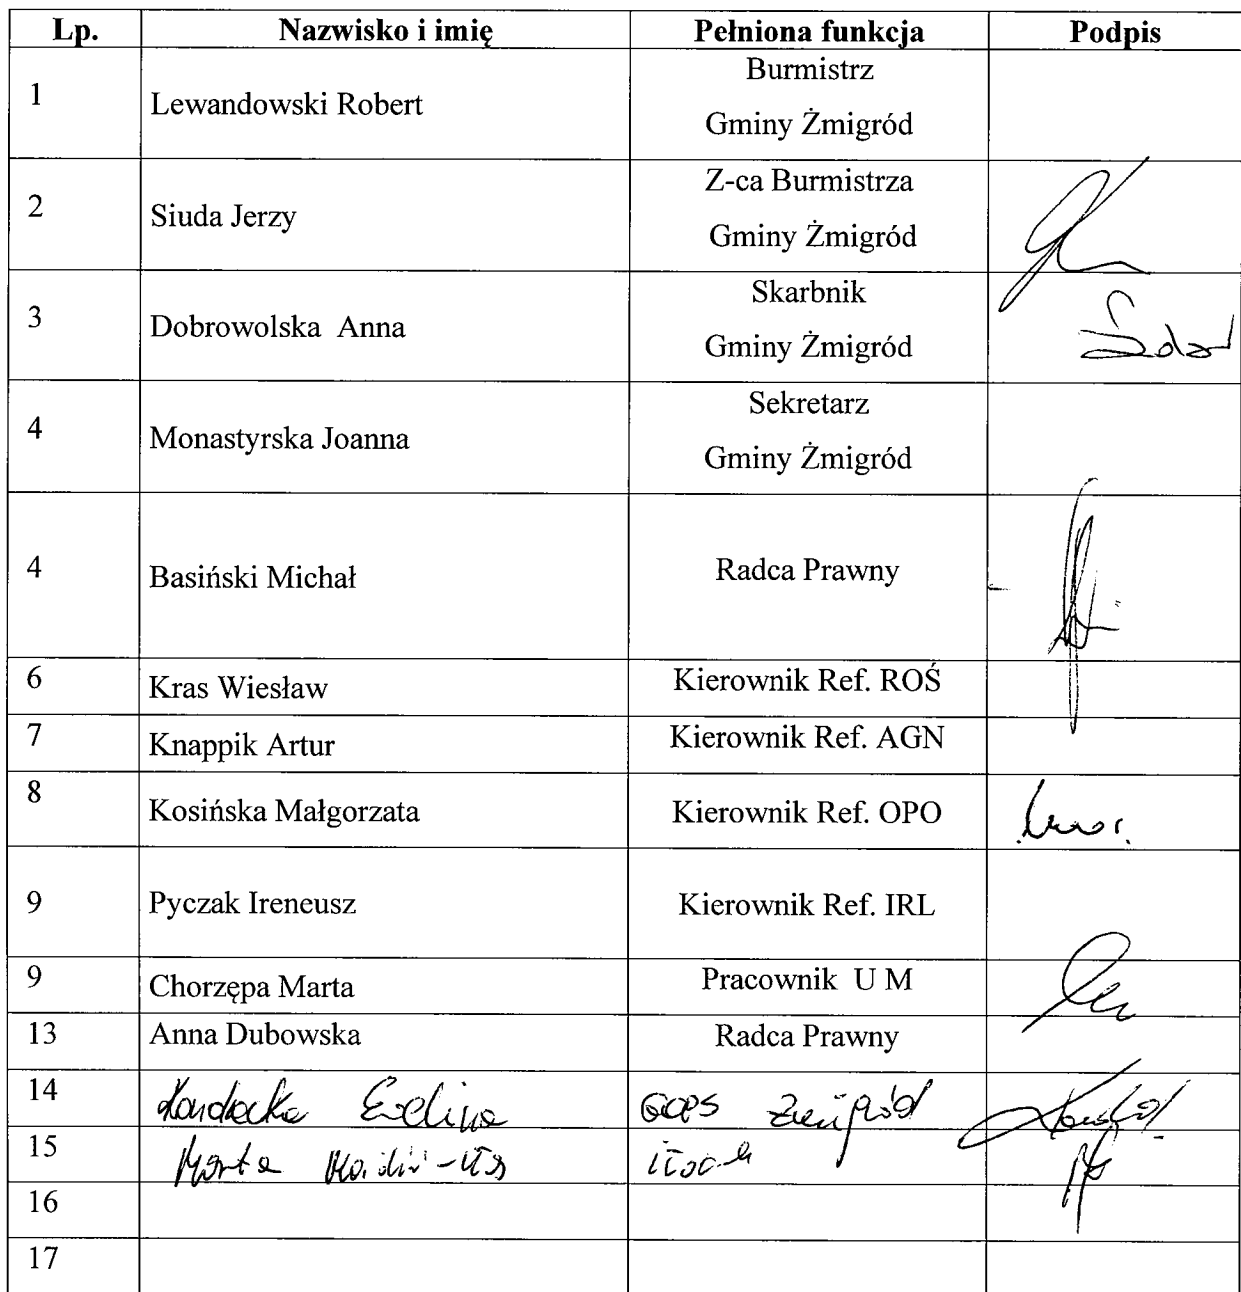 Lp. Nazwisko i imię Pełniona funkcja Podpis
1 Lewandowski Robert Burmistrz
Gminy Żmigród
2 Siuda Jerzy Z-ca Burmistrza
Gminy Żmigród
3 Dobrowolska Anna Skarbnik
Gminy Żmigród
4 Monastyrska Joanna Sekretarz
Gminy Żmigród
4 Basiński Michał Radca Prawny
6 Kras Wiesław Kierownik Ref. ROŚ
7 Knappik Artur Kierownik Ref. AGN
8 Kosińska Małgorzata Kierownik Ref. OPO
9 Pyczak Ireneusz Kierownik Ref. IRL
9 Chorzępa Marta Pracownik U M
13 Anna Dubowska Radca Prawny
14 Ewelina Żmigród
15 Marta
16
17